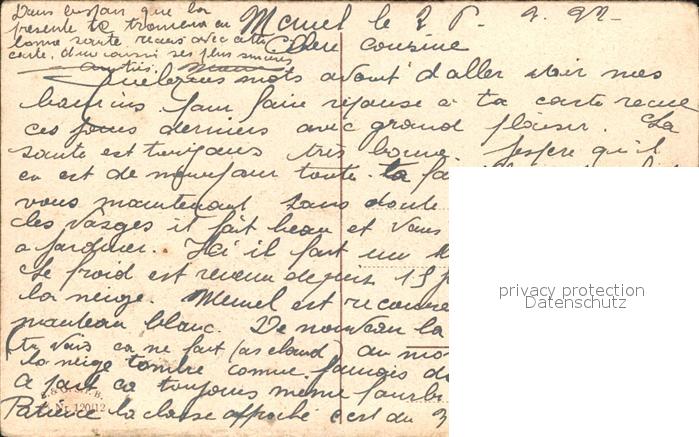 Dans l'espoir que la
presente te trouvera en
bonne sante recois avec cette
carte, d'un cousin ses plus sinceres
amities.
Memel le 2 9. 22
Chere cousine
Quelques mots avant d'aller voir mes
pour faire reponse a ta carte recue
ces jours derniers avec grand plaisir. La
sante est toujours très bonne. J'espere qu'il
en est de meme pour toute ta fa
vous maintenant sans doute
des Vosges il fait beau et vous
a jardiner. Ici il fait un
Le froid est revenu depuis 15 j
la neige. Memel est recouvert
manteau blanc. De nouveau la
(tu vois ca ne fait pas chaud) au mo
la neige tombe comme jamais
A part ca toujours meme
Patience la classe approche c'est du
120/12
privacy protection
Datenschutz